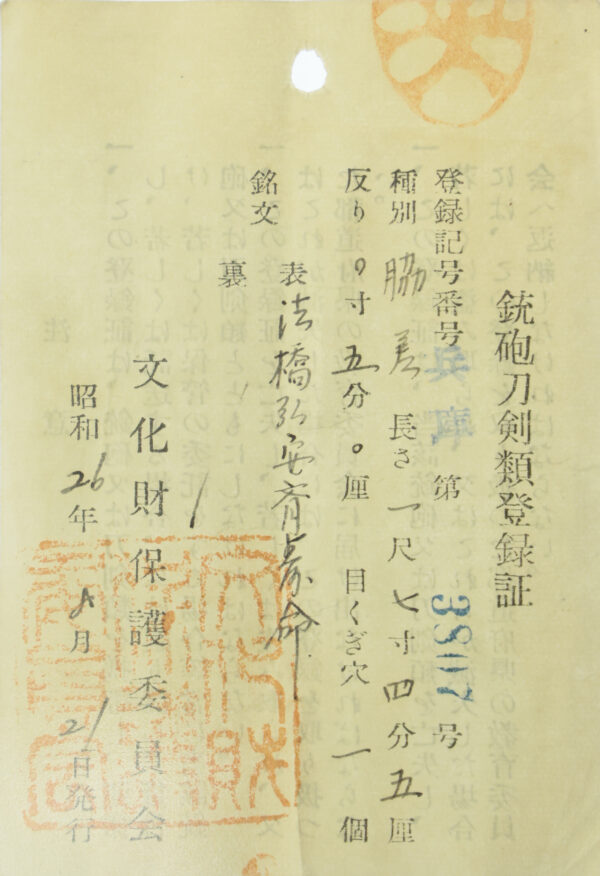 銃砲刀剣類登録証
登録記号番号 兵庫 第 3807 号
種別 脇差 長さ 一尺七寸四分五厘
反り 〇寸五分〇厘 目くぎ穴 一個
銘文 表 法橋弘安斉寿命
裏
文化財保護委員会
昭和26年8月21日発行